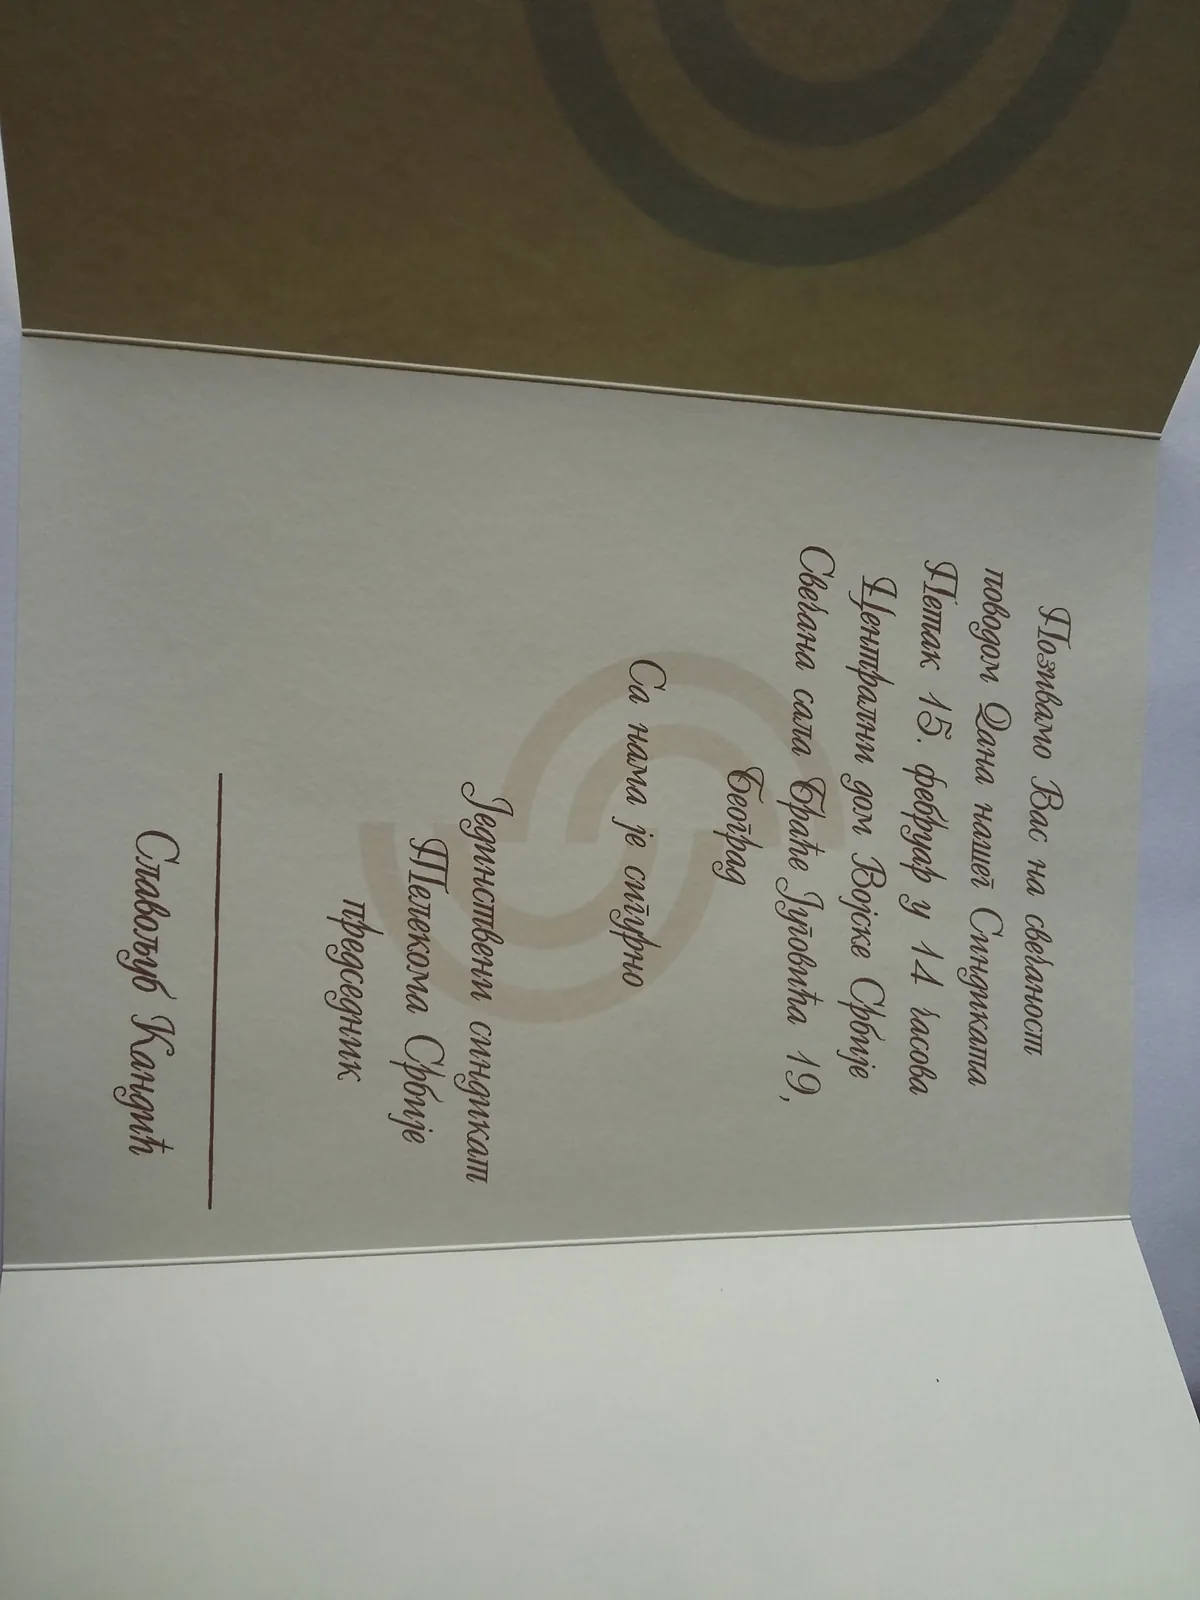 Позивамо Вас на свечаност
поводом Дана нашег Синдиката
Петак 15. фебруар у 14 часова
Централни дом Војске Србије
Свечана сала Браће Југовића 19,
Београд
Са нама је сигурно
Јединствени синдикат
Телекома Србије
председник
Славољуб Кандић